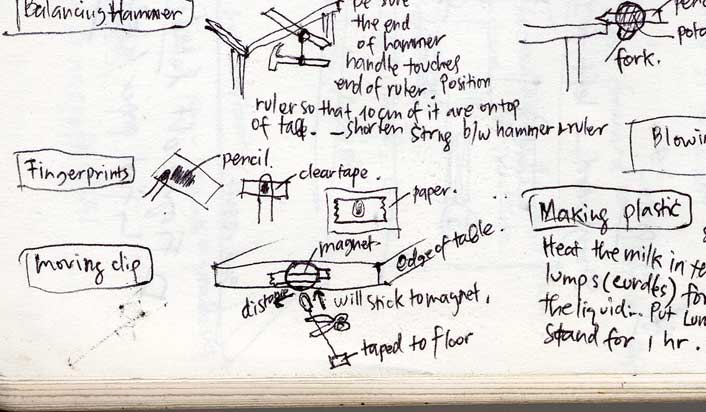 Balancing Hammer
be sure
the end
of hammer
handle touches
end of ruler. Position
ruler so that 10 cm of it are on top
of table. – shorten string b/w hammer & ruler
fork.
Blowin
Fingerprints
pencil.
clear tape.
paper.
Making plastic
Heat the milk in
lumps (curdles) for
the liquid... Put
Stand for 1 hr.
Moving clip
magnet
edge of table.
distance
will stick to magnet.
taped to floor